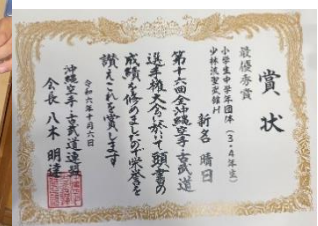 賞状
最優秀賞
小学生中学年団体(3・4年生)
少林流聖武館H
新名 晴日
第十六回全沖縄空手・古武道
選手権大会に於いて頭書の
成績を修めましたので栄誉を
讃えこれを賞します
令和六年十月六日
沖縄空手・古武道連盟
会長 八木 明達